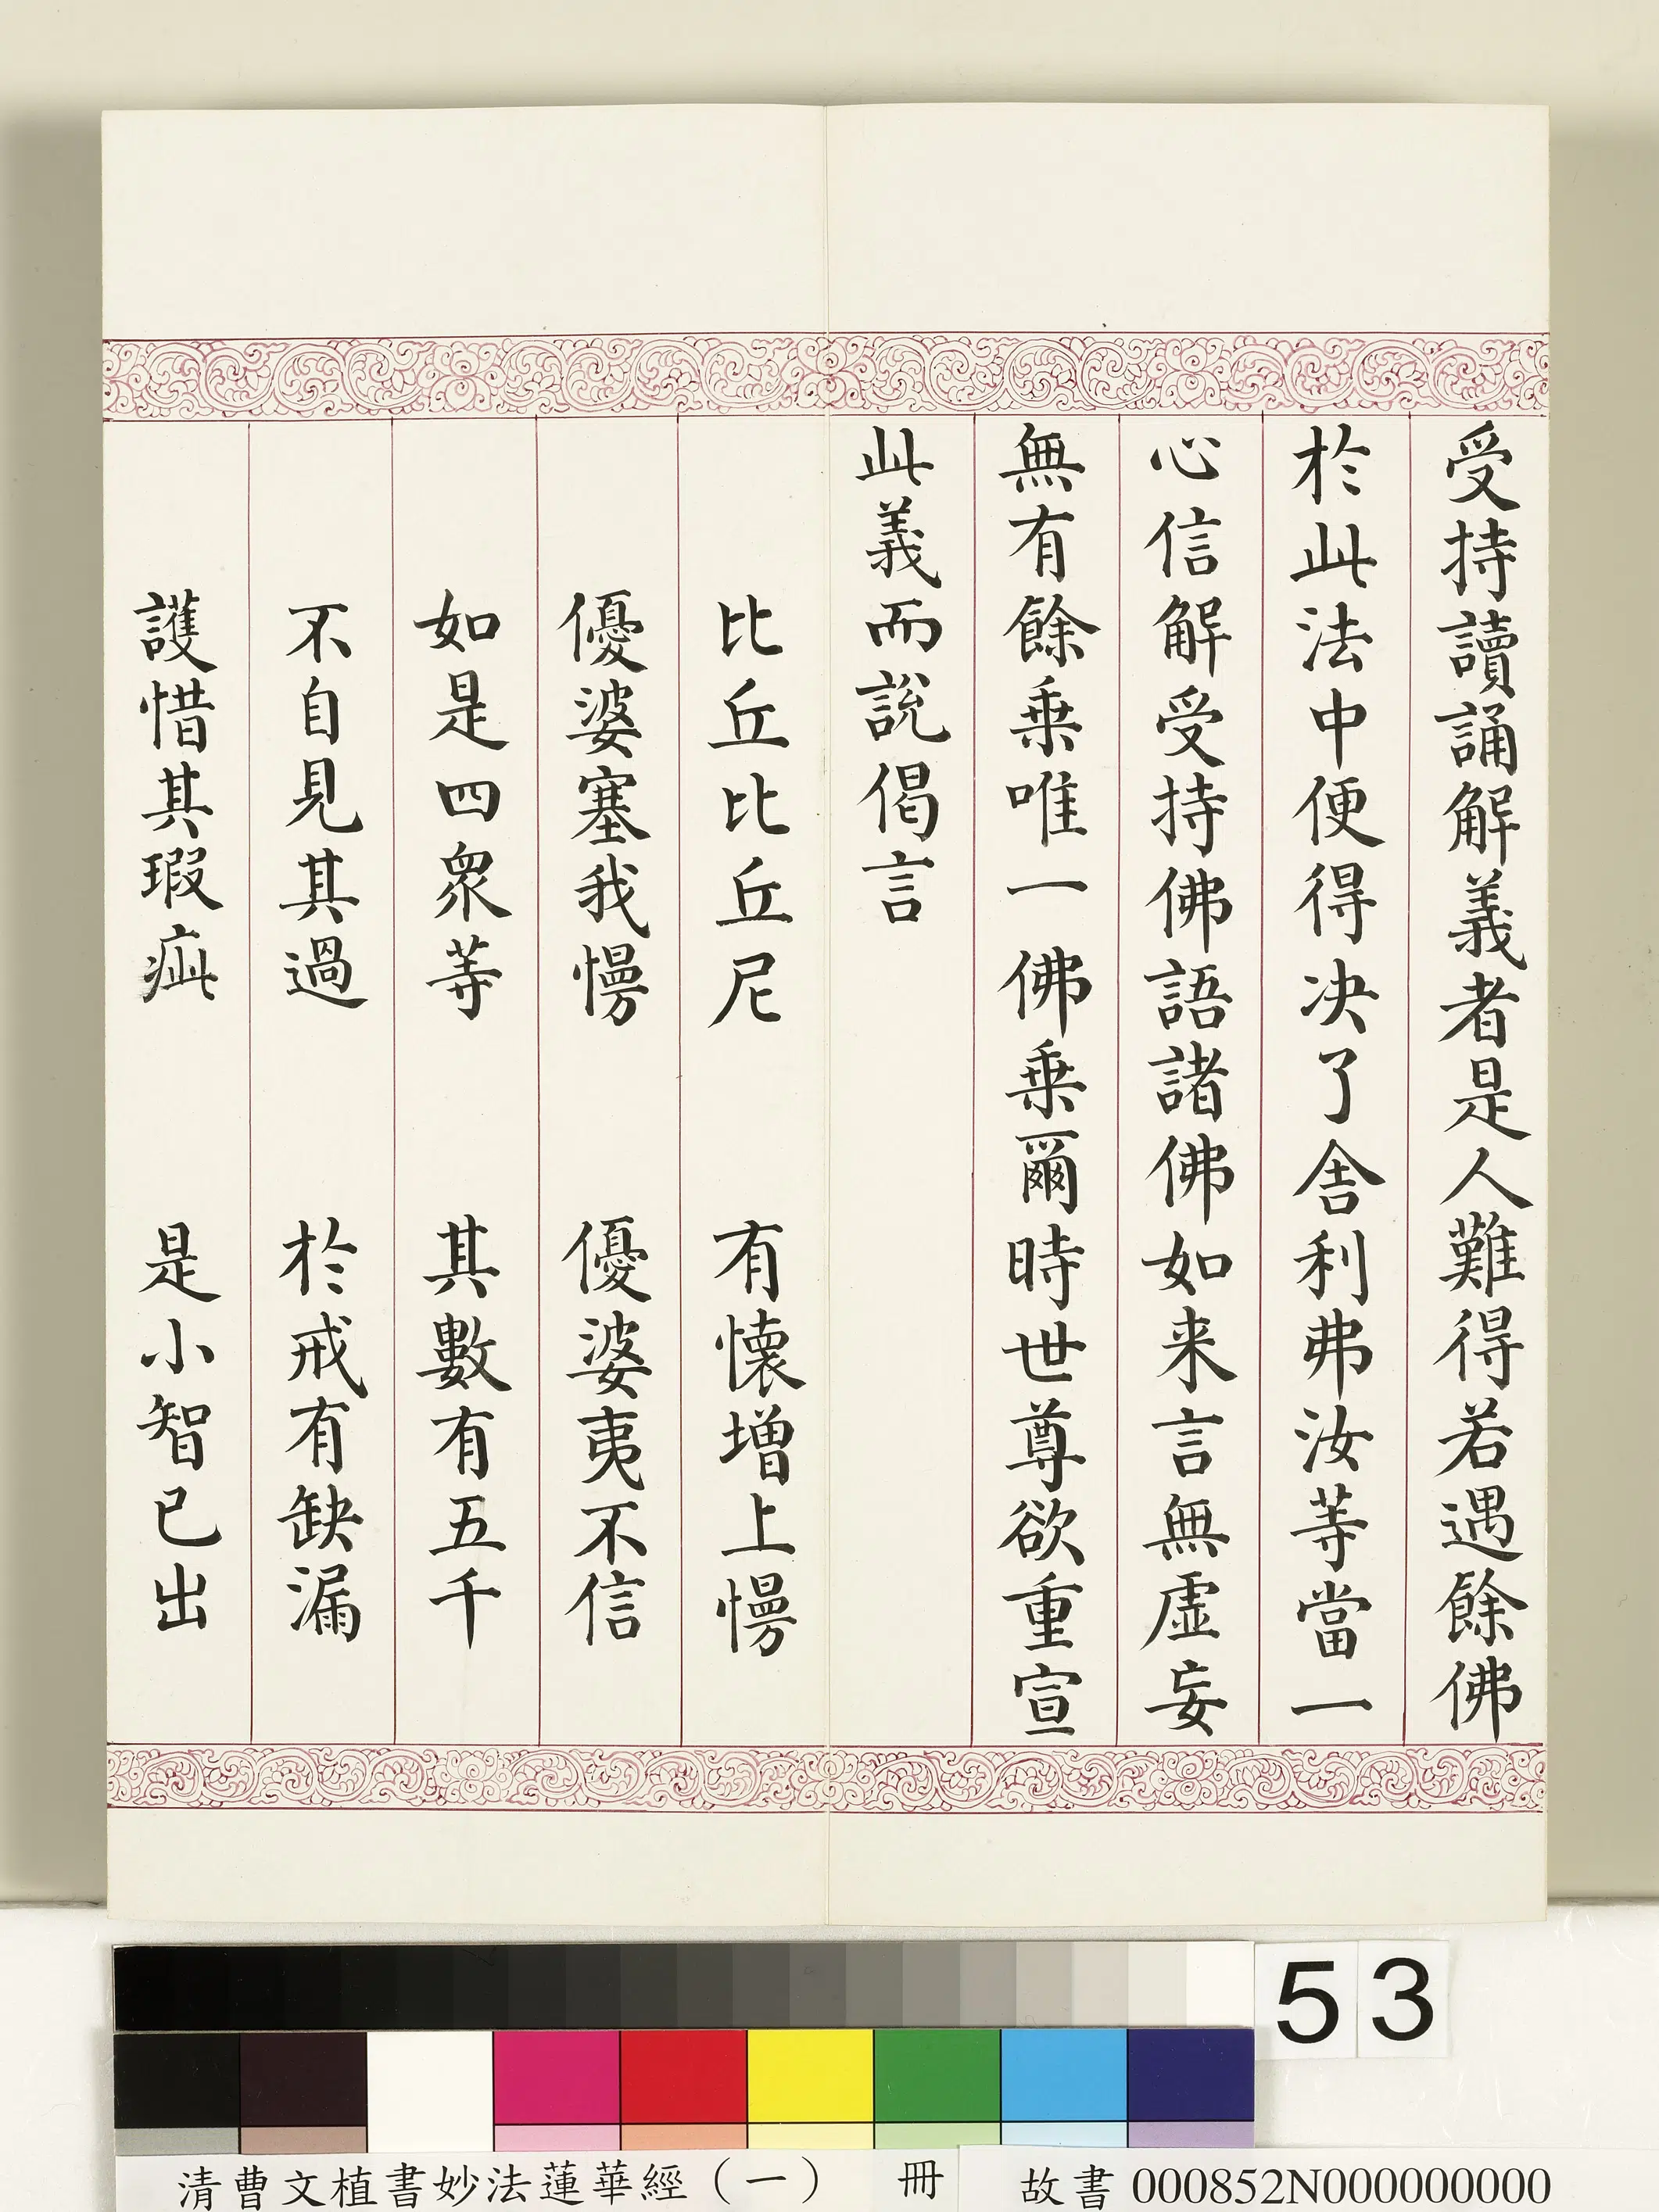 受持讀誦解義者是人難得若遇餘佛
於此法中便得决了舍利弗汝等當一
心信解受持佛語諸佛如来言無虛妄
無有餘乗唯一佛乗爾時世尊欲重宣
此義而說偈言
比丘比丘尼 有懷增上慢
優婆塞我慢 優婆夷不信
如是四衆等 其數有五千
不自見其過 於戒有缺漏
護惜其瑕疵 是小智已出
53
清曹文植書妙法蓮華經（一） 冊 故書000852N000000000